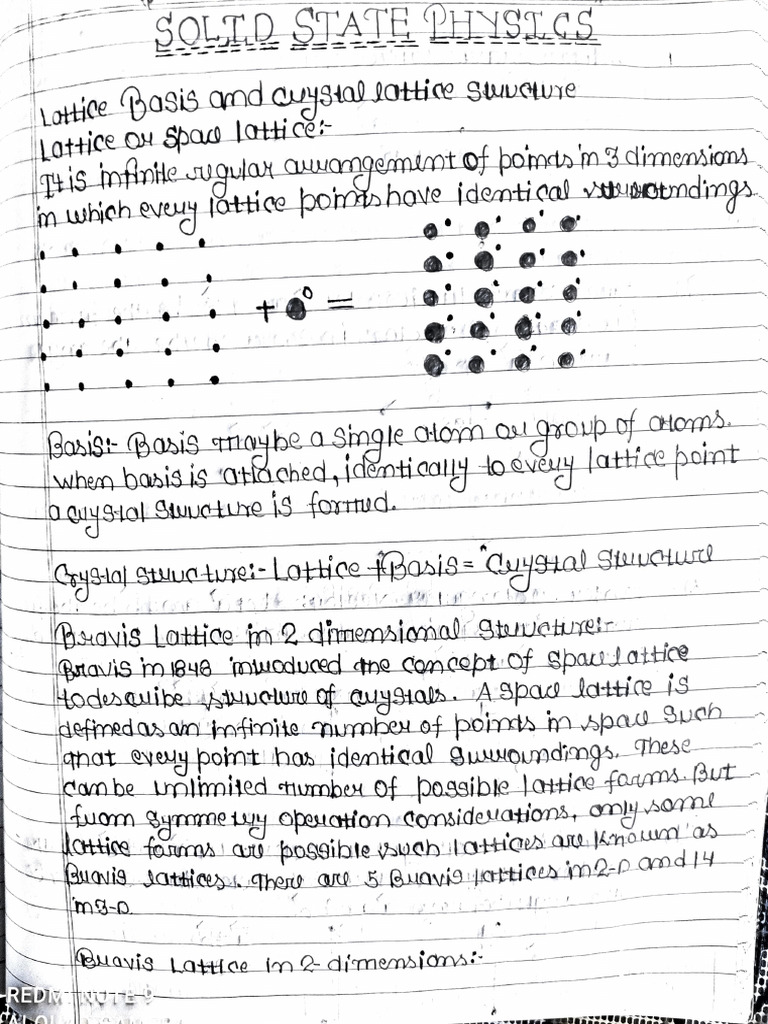 SOLID STATE PHYSICS
Lattice Basis and crystal lattice structure
Lattice or space lattice:-
It is infinite regular arrangement of points in 3 dimensions
in which every lattice points have identical surroundings
+ =
Basis:- Basis maybe a single atom or group of atoms.
when basis is attached, identically to every lattice point
a crystal structure is formed.
Crystal structure:- Lattice + Basis = Crystal structure
Bravis Lattice in 2 dimensional structure:-
Bravis in 1848 introduced the concept of space lattice
to describe structure of crystals. A space lattice is
defined as an infinite number of points in space such
that every point has identical surroundings. These
can be unlimited number of possible lattice forms. But
from symmetry operation considerations, only some
lattice forms are possible such lattices are known as
Bravis lattices. There are 5 Bravis lattices in 2-D and 14
in 3-D.
Bravis Lattice in 2-dimensions:-
REDMI NOTE 9